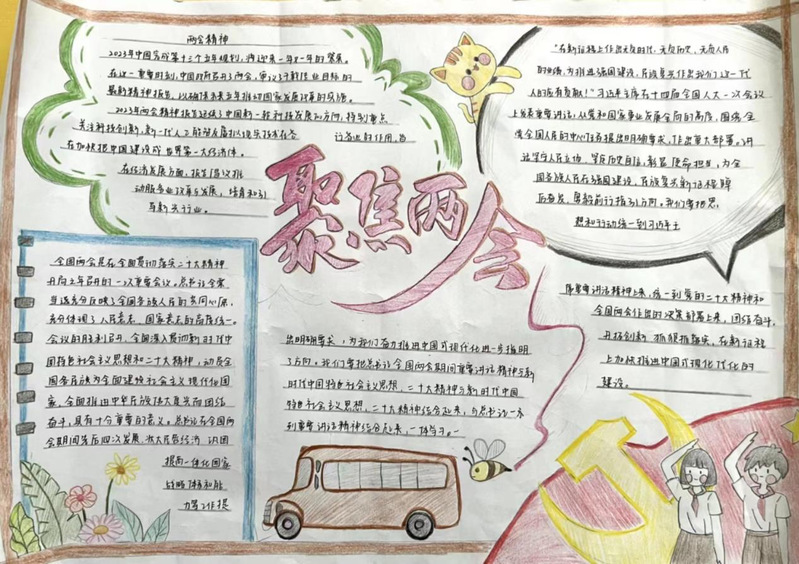 两会精神
2023年中国完成第十三个五年规划，将迎来一年又一年的
在这一重要时刻，中国政府召开了两会，审议了
最新精神报告，以确保未来五年推动国家发展改革的成语。
2023年两会精神报告延续了中国新一轮科技发展的方向，特别重点
关注科技创新，新一代人工智能
在加快把中国建设成世界第一大经济体。
在经济发展方面，报告
动服务业改革与发展，培育和引
导新兴行业。
聚焦两会
"在新征程上作出无负时代、无负历史、无负人民
的业绩，为推进强国建设、民族复兴作出我们这一代
人的应有贡献！"习近平主席在十四届全国人大一次会议
上发表重要讲话，从党和国家事业发展全局的高度，围绕全
党全国人民的中心任务提出明确要求，作出重大部署。讲
话坚守人民立场，坚定历史自信，彰显使命担当，为全
国各族人民在强国建设、民族复兴新征程踔
厉奋发、勇毅前行指引了方向。我们要把思
想和行动统一到习近平主
席重要讲话精神上来，统一到党的二十大精神和
全国两会作出的决策部署上来，团结奋斗，
开拓创新，抓狠抓落实，在新征程
上加快推进中国式现代化的
建设。
全国两会是在全面贯彻落实二十大精神
开局之年召开的一次重要会议。总书记会
当选充分反映了全国各族人民的共同心愿，
充分体现了人民意志、国家意志的高度统一。
会议的胜利召开，全面深入贯彻新时代中
国特色社会主义思想和二十大精神，动员全
国各民族为全面建设社会主义现代化国
家、全面推进中华民族伟大复兴而团结
奋斗，具有十分重要的意义。总书记在全国两
会期间先后四次发展，
提高一体化国家
战略体系和能
力等工作提
出明确要求，为我们奋力推进中国式现代化进一步指明
了方向。我们要把总书记全国两会期间重要讲话精神与新
时代中国特色社会主义思想、二十大精神与新时代中国
特色社会主义思想、二十大精神结合起来，与总书记一系
列重要讲话精神结合起来，一体学习。